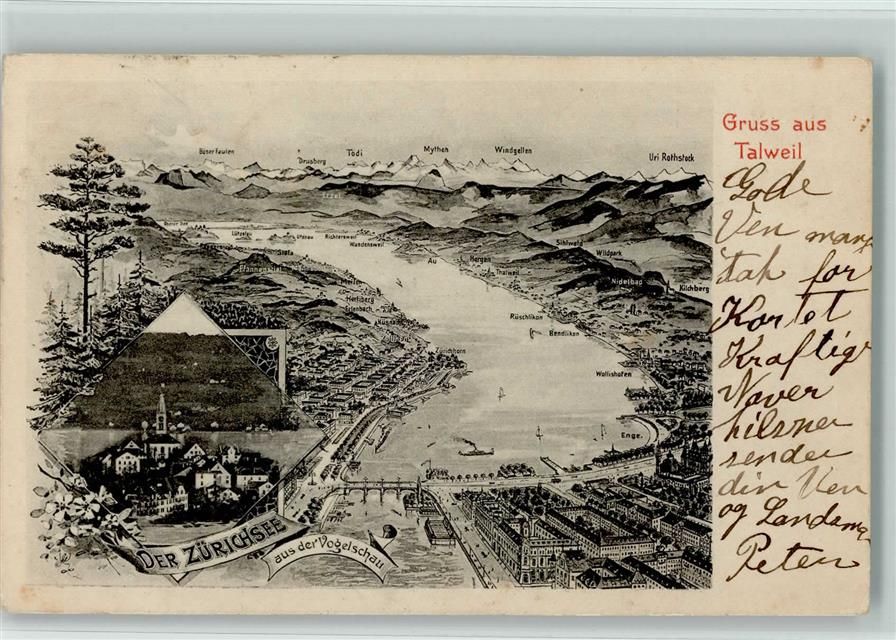 Gruss aus
Talweil
Gode
Ven mange
tak for
Kortet
Kraftige
Naver
hilsner
sender
din Ven
og Landsma
Peten
Böser Faulen
Drusberg
Tödi
Mythen
Windgellen
Uri Rothstock
Etzel
Lützelau
Ufenau
Richtersweil
Wandensweil
Stäfa
Pfannenstiel
Meilen
Herrliberg
Erlenbach
Küsnacht
Zürichhorn
Au
Horgen
Thalweil
Sihlwald
Wildpark
Nidelbad
Kilchberg
Rüschlikon
Bendlikon
Wollishofen
Enge.
DER ZÜRICHSEE
aus der Vogelschau